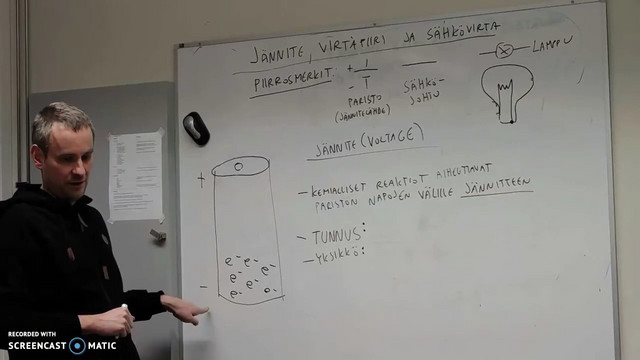 JÄNNITE, VIRTAPIIRI JA SÄHKÖVIRTA
PIIRROSMERKIT
+
-
PARISTO
(JÄNNITELÄHDE)
SÄHKÖ-
JOHTO
LAMPPU
JÄNNITE (VOLTAGE)
- KEMIALLISET REAKTIOT AIHEUTTAVAT
PARISTON NAPOJEN VÄLILLE JÄNNITTEEN
- TUNNUS:
- YKSIKKÖ:
+
e- e-
e- e-
e-
e- e-
-
RECORDED WITH
SCREENCAST MATIC